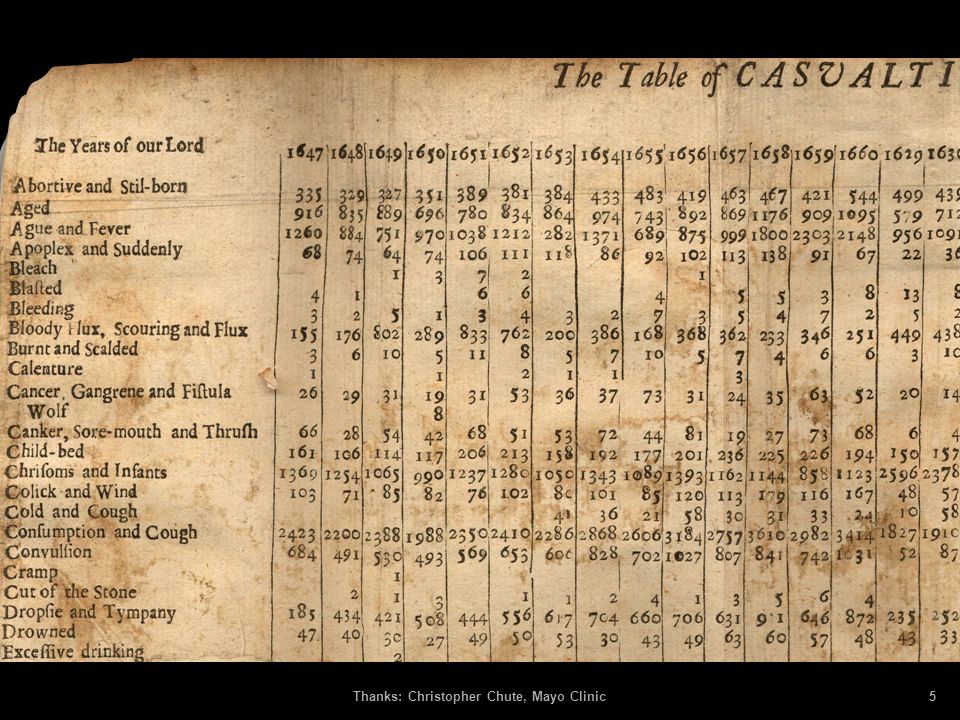 The Table of CASUALTI
The Years of our Lord 1647 1648 1649 1650 1651 1652 1653 1654 1655 1656 1657 1658 1659 1660 1629 1630
Abortive and Stil-born 335 329 327 351 389 381 384 433 483 419 463 467 421 544 499 439
Aged 916 835 889 696 780 834 864 974 743 892 869 1176 909 1095 579 712
Ague and Fever 1260 884 751 970 1038 1212 282 1371 689 875 999 1800 2303 2148 956 1091
Apoplex and Suddenly 68 74 64 74 106 111 118 86 92 102 113 138 91 67 22 36
Bleach 1 3 7 2 1
Blaſted 4 1 6 6 4 5 5 3 8 13 8
Bleeding 3 2 5 1 3 4 3 2 7 3 5 4 7 2 5 2
Bloody Flux, Scouring and Flux 155 176 802 289 833 762 200 386 168 368 362 233 346 251 449 438
Burnt and Scalded 3 6 10 5 11 8 5 7 10 5 7 4 6 6 3 10
Calenture 1 1 2 1 1 3
Cancer, Gangrene and Fiſtula 26 29 31 19 31 53 36 37 73 31 24 35 63 52 20 14
Wolf 8
Canker, Sore-mouth and Thruſh 66 28 54 42 68 51 53 72 44 81 19 27 73 68 6 4
Child-bed 161 106 114 117 206 213 158 192 177 201 236 225 226 194 150 157
Chriſoms and Infants 1369 1254 1065 990 1237 1280 1050 1343 1089 1393 1162 1144 858 1123 2596 2378
Colick and Wind 103 71 85 82 76 102 80 101 85 120 113 179 116 167 48 57
Cold and Cough 41 36 21 58 30 31 33 24 10 58
Conſumption and Cough 2423 2200 2388 1988 2350 2410 2286 2868 2606 3184 2757 3610 2982 3414 1827 1910
Convulſion 684 491 530 493 569 653 606 828 702 1027 807 841 742 1031 52 87
Cramp 1
Cut of the Stone 2 1 3 1 1 2 4 1 3 5 6 4
Dropſie and Tympany 185 434 421 508 444 556 617 704 660 706 631 931 646 872 235 252
Drowned 47 40 30 27 49 50 53 30 43 49 63 60 57 48 43 33
Exceſſive drinking 2
Thanks: Christopher Chute, Mayo Clinic 5